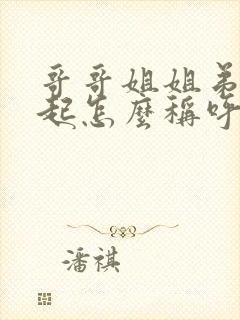 哥哥姐姐弟
起怎麼稱呼
潘祺